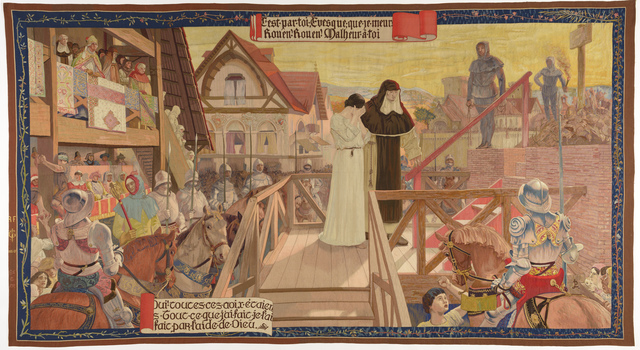 C'est·par·toi·Evesque·que·je·meur
Rouen·Rouen·Malheur·à·toi
Oui·toutes·ces·voix·étaien
s·Tout·ce·que·j'ai·fait·je·l'ai
fait·par·l'aide·de·Dieu